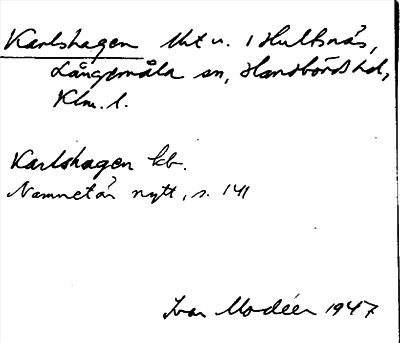 Karlshagen tlt u. 1 Hultsnäs,
Långemåla sn, Handbörds hd,
Klm. l.
Karlshagen kb.
Namnet är nytt, s. 141
Ivar Modéer 1947